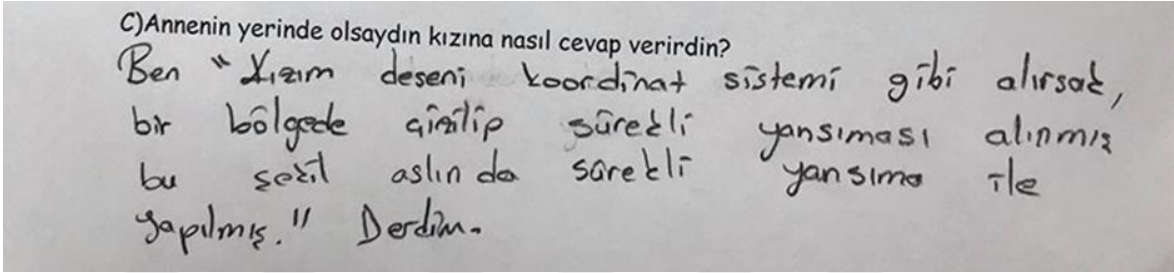 C)Annenin yerinde olsaydın kızına nasıl cevap verirdin?
Ben "Kızım deseni koordinat sistemi gibi alırsak,
bir bölgede çizilip sürekli yansıması alınmış
bu şekil aslında sürekli yansıma ile
yapılmış." Derdim.